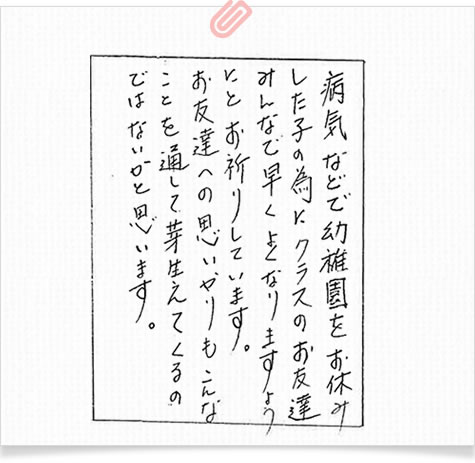 病気などで幼稚園をお休み
した子の為にクラスのお友達
みんなで早くよくなりますよう
にとお祈りしています。
お友達への思いやりもこんな
ことを通して芽生えてくるの
ではないかと思います。